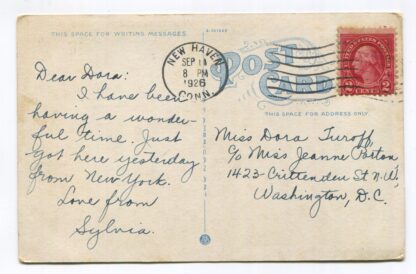 THIS SPACE FOR WRITING MESSAGES
NEW HAVEN
SEP 11
8 PM
1926
CONN.
POST
CARD
THIS SPACE FOR ADDRESS ONLY
Dear Dora:
I have been
having a wonder-
ful time. Just
got here yesterday
from New York.
Love from
Sylvia.
Miss Dora Turoff
c/o Miss Jeanne
1423 Crittenden St. N.W.
Washington, D.C.